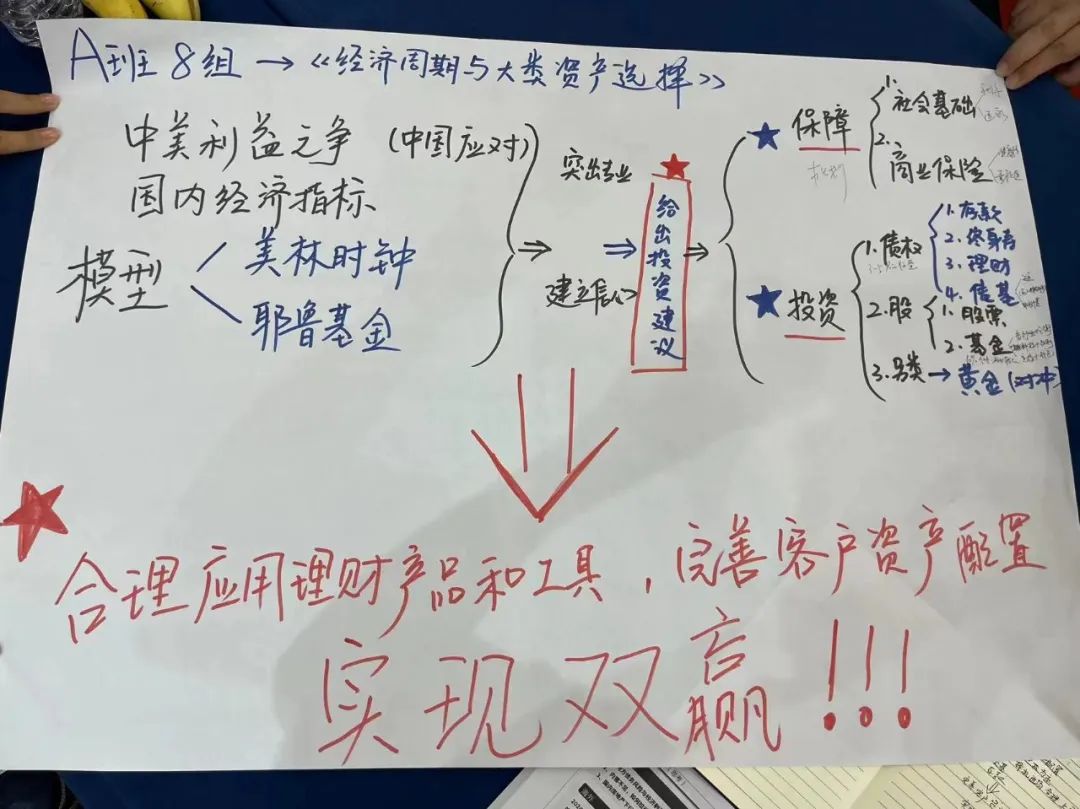 A班8组→《经济周期与大类资产选择》
中美利益之争（中国应对）
国内经济指标
模型
美林时钟
耶鲁基金
突出专业
建立信心
给出投资建议
保障
1.社会基础
2.商业保险
投资
1.债权
1.存款
2.终身寿
3.理财
4.债基
2.股
1.股票
2.基金
3.另类→黄金（对冲）
合理应用理财产品和工具，完善客户资产配置
实现双赢!!!